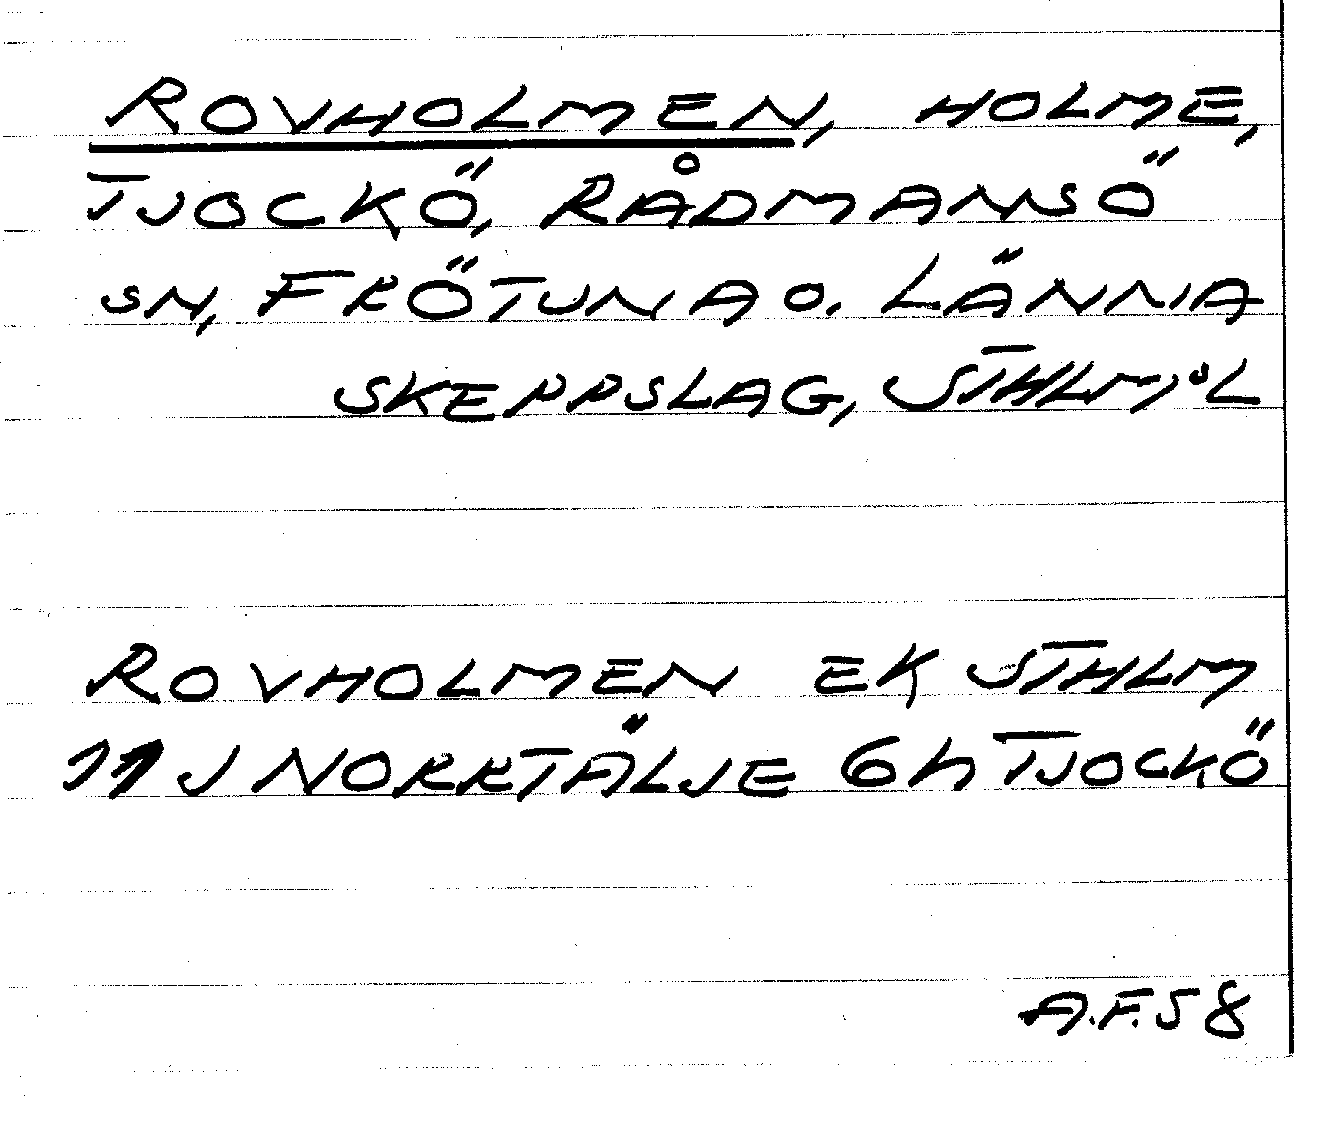 ROVHOLMEN, HOLME,
TJOCKÖ, RÅDMANSÖ
SN, FRÖTUNA O. LÄNNA
SKEPPSLAG, STHLMS L
ROVHOLMEN EK STHLM
11 J NORRTÄLJE 6h TJOCKÖ
A.F. 58